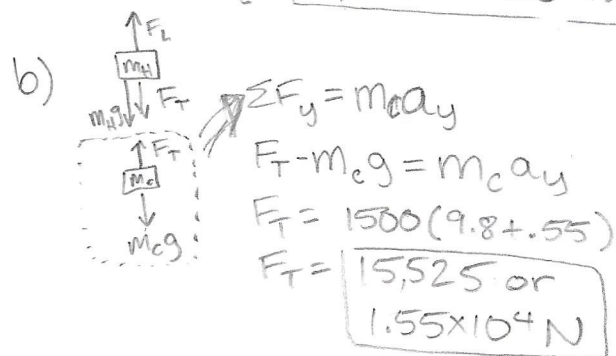 b)
F_L
m_H
m_Hg F_T
F_T
m_c
m_cg
ΣF_y = m_c a_y
F_T - m_c g = m_c a_y
F_T = 1500(9.8+.55)
F_T = 15,525 or
1.55×10⁴ N